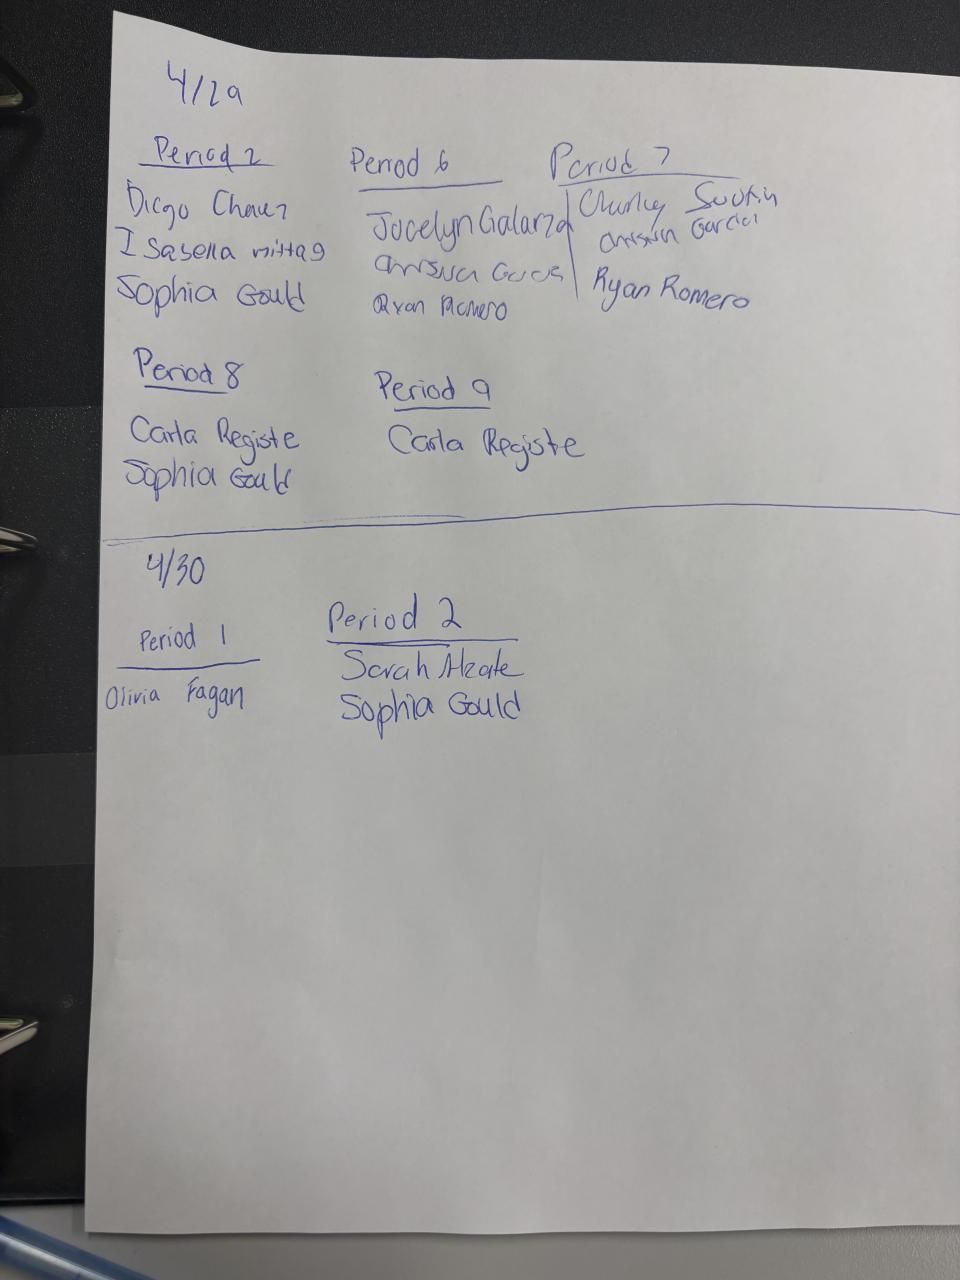 4/29
Period 2
Diego Chavez
Isabella Mittag
Sophia Gould
Period 6
Jocelyn Galarza
Ryan Romero
Period 7
Charley
Garcia
Ryan Romero
Period 8
Carla Registe
Sophia Gould
Period 9
Carla Registe
4/30
Period 1
Olivia Fagan
Period 2
Sarah Alzate
Sophia Gould